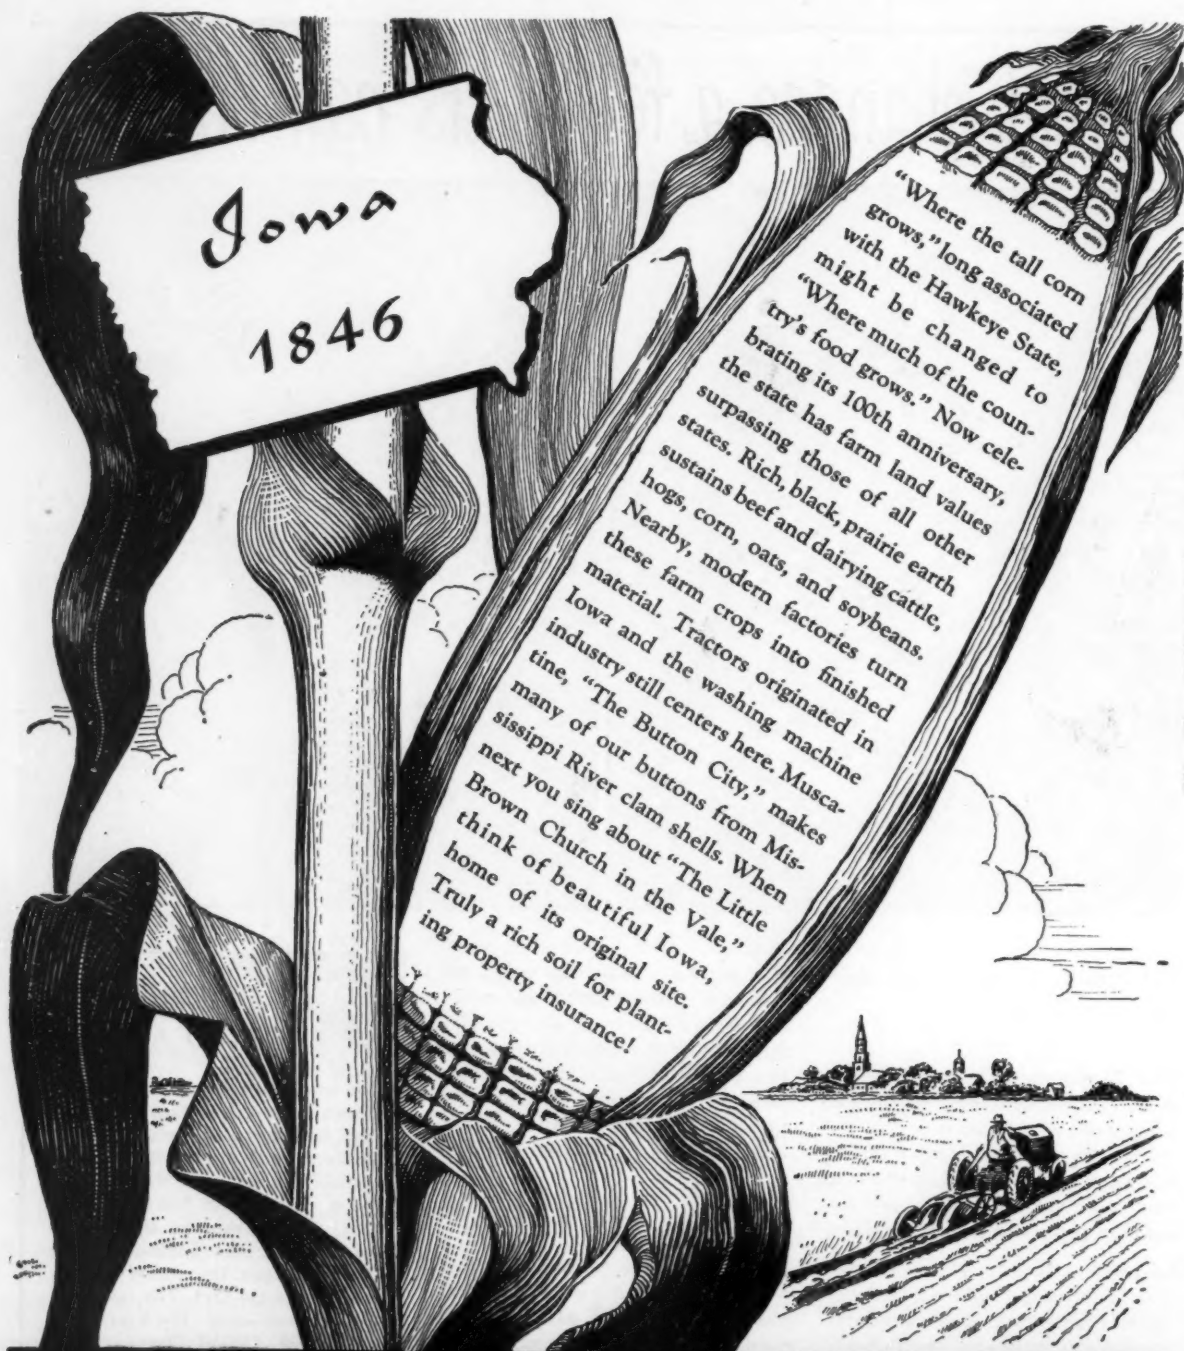 Iowa
1846
“Where the tall corn
grows,” long associated
with the Hawkeye State,
might be changed to
“Where much of the coun-
try’s food grows.” Now cele-
brating its 100th anniversary,
the state has farm land values
surpassing those of all other
states. Rich, black, prairie earth
sustains beef and dairying cattle,
hogs, corn, oats, and soybeans.
Nearby, modern factories turn
these farm crops into finished
material. Tractors originated in
Iowa and the washing machine
industry still centers here. Musca-
tine, “The Button City,” makes
many of our buttons from Mis-
sissippi River clam shells. When
next you sing about “The Little
Brown Church in the Vale,”
think of beautiful Iowa,
home of its original site.
Truly a rich soil for plant-
ing property insurance!